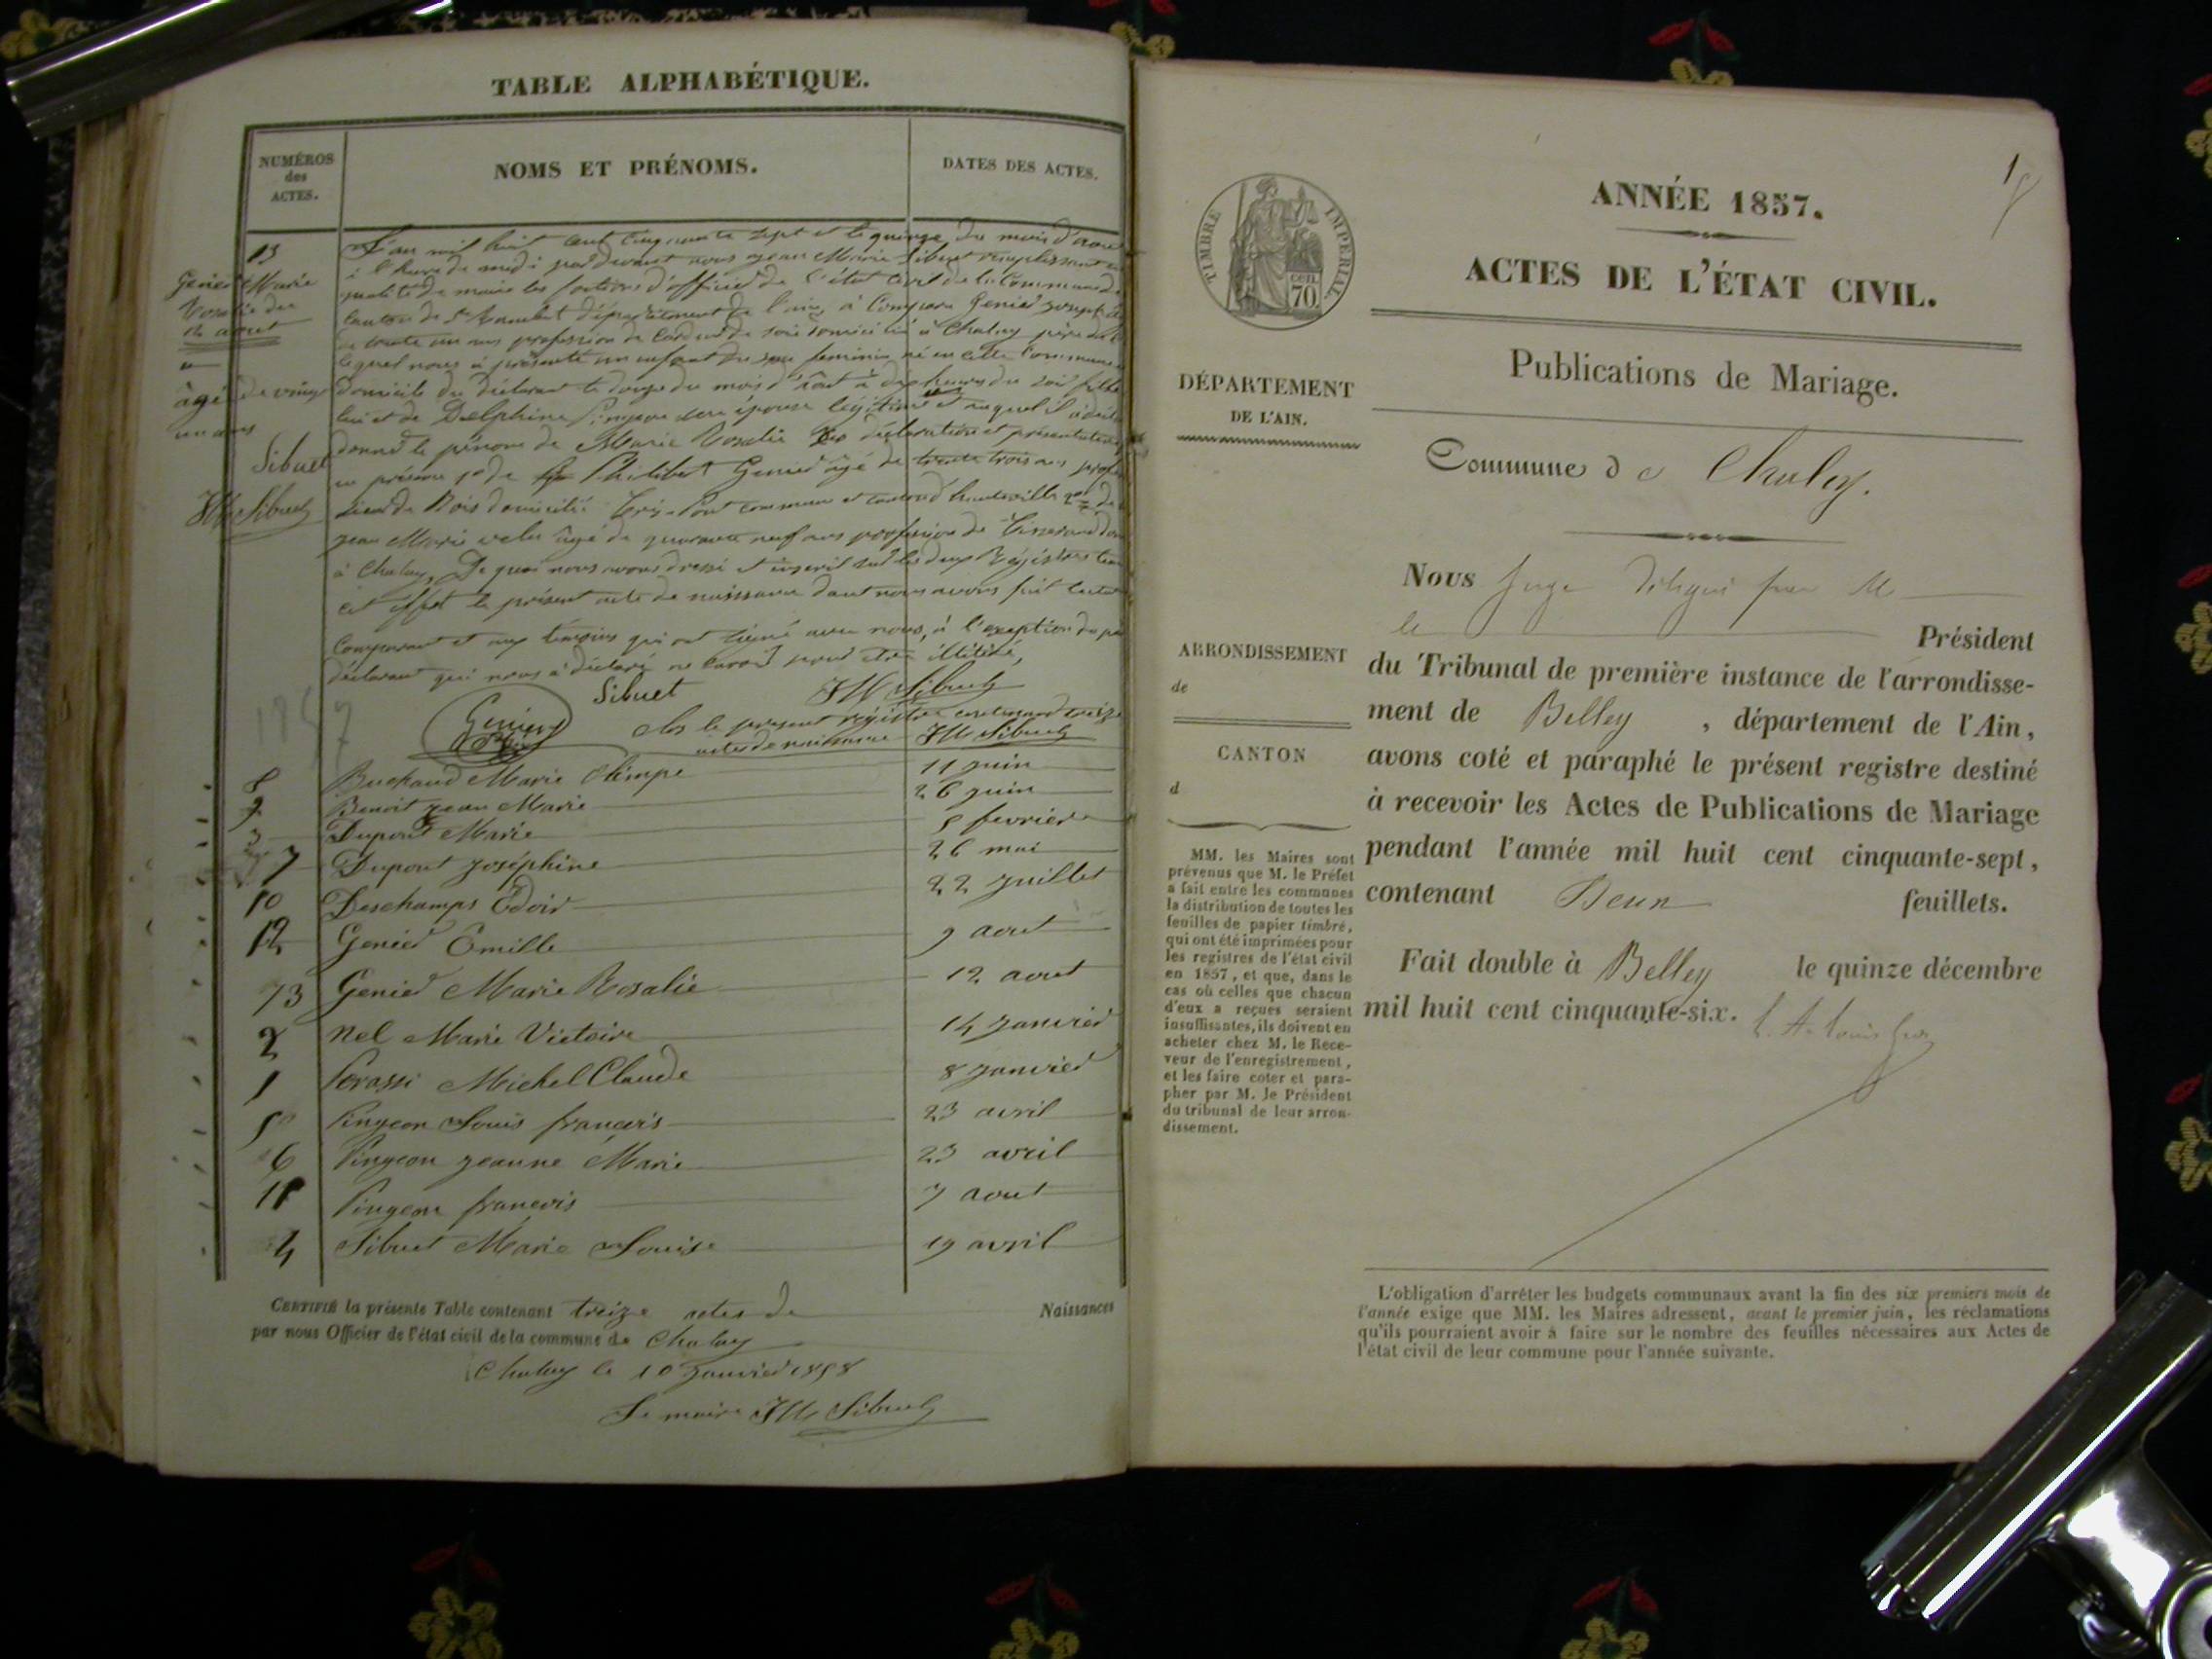 TABLE ALPHABÉTIQUE.
NUMÉROS
des
ACTES.
NOMS ET PRÉNOMS.
DATES DES ACTES.
13
Genier Marie
Rosalie du
12 aout
âgé de vingt
un ans
Sibuet
JM Sibuet
L'an mil huit cent cinquante sept et le quinze du mois d'aout
à l'heure de midi pardevant nous jean Marie Sibuet remplissant en
qualité de maire les fonctions d'officier de l'état civil de la Commune de
canton de St Rambert département de l'ain, à Comparu Genier joseph
de trente un ans profession de cardeur de soie domicilié à Chaley père de
lequel nous à présenté un enfant du sexe feminin né en cette Commune
domicile du déclarant le douze du mois d'aout à dix heures du soir fille
lui et de Delphine Pingeon son épouse légitime et auquel il à
donné le prénom de Marie Rosalie déclaration et présentation
en présence 1º de Philibert Genier âgé de trente trois ans
de Bois domicilié commune et canton d'hauteville 2º de
jean Marie âgé de quarante neuf ans profession de Tisserand
à Chaley, De quoi nous avons dressé et inscrit sur les deux Régistres
cet effet le présent acte de naissance dont nous avons fait lecture
Comparant et aux témoins qui ont signé avec nous, à l'exception du
déclarant qui nous à déclaré ne savoir pour être illitéré,
Sibuet JM Sibuet
Genier
Clos le présent régistre contenant treize
actes de naissance JM Sibuet
1857
8 Buchaud Marie Olimpe 11 juin
9 Benoit jean Marie 26 juin
3 Dupont Marie 5 fevrier
7 Dupont joséphine 26 mai
10 Deschamps Edoir 22 juillet
12 Genier Emille 9 aout
13 Genier Marie Rosalie 12 aout
2 nel Marie Victoire 14 janvier
1 Michel Claude 8 janvier
5 Pingeon Louis francois 23 avril
6 Pingeon jeanne Marie 23 avril
11 Pingeon francois 7 aout
4 Sibuet Marie Louise 19 avril
CERTIFIÉ la présente Table contenant treize actes de Naissances
par nous Officier de l'état civil de la commune de Chaley
Chaley le 10 janvier 1858
Le maire JM Sibuet
1
TIMBRE IMPERIAL.
cen.
70.
ANNÉE 1857.
ACTES DE L'ÉTAT CIVIL.
Publications de Mariage.
Commune de Chaley.
DÉPARTEMENT
DE L'AIN.
ARRONDISSEMENT
de
CANTON
d
MM. les Maires sont
prévenus que M. le Préfet
a fait entre les communes
la distribution de toutes les
feuilles de papier timbré,
qui ont été imprimées pour
les registres de l'état civil
en 1857, et que, dans le
cas où celles que chacun
d'eux a reçues seraient
insuffisantes, ils doivent en
acheter chez M. le Rece-
veur de l'enregistrement,
et les faire coter et para-
pher par M. le Président
du tribunal de leur arron-
dissement.
Nous Juge délégué par M
le Président
du Tribunal de première instance de l'arrondisse-
ment de Belley, département de l'Ain,
avons coté et paraphé le présent registre destiné
à recevoir les Actes de Publications de Mariage
pendant l'année mil huit cent cinquante-sept,
contenant Deux feuillets.
Fait double à Belley le quinze décembre
mil huit cent cinquante-six.
L'obligation d'arrêter les budgets communaux avant la fin des six premiers mois de
l'année exige que MM. les Maires adressent, avant le premier juin, les réclamations
qu'ils pourraient avoir à faire sur le nombre des feuilles nécessaires aux Actes de
l'état civil de leur commune pour l'année suivante.